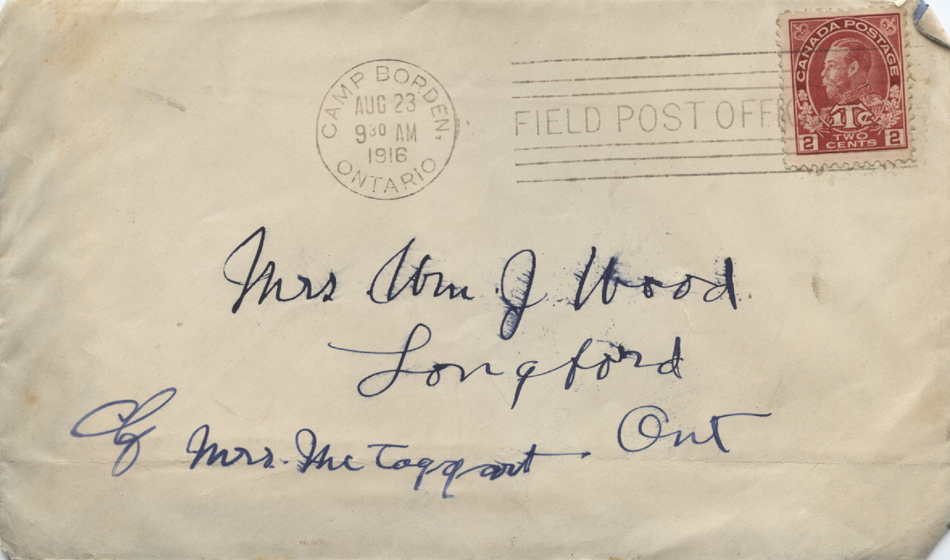 CAMP BORDEN,
AUG 23
9 30 AM
1916
ONTARIO
FIELD POST OFFIC
CANADA POSTAGE
1Tc
2 TWO CENTS 2
Mrs Wm J Wood
Longford
Ont
c/o Mrs. McTaggart.